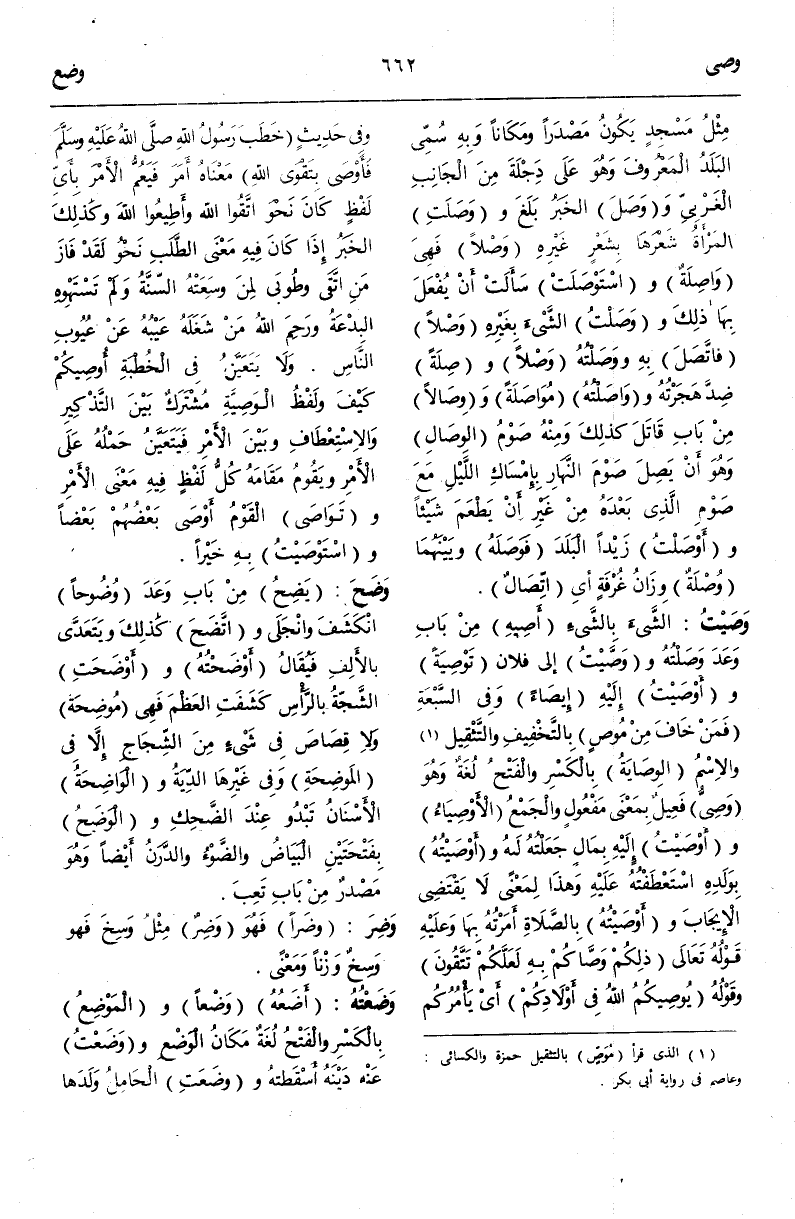 وصى
٦٦٢
وضع
مِثْلُ مَسْجِدٍ يَكُونُ مَصْدَراً ومَكَاناً وَبِهِ سُمِّىَ
البَلَدُ الْمَعْرُوفُ وَهُوَ عَلَى دِجْلَةَ مِنَ الْجَانِبِ
الْغَرْبِىِّ وَ (وَصَلَ) الخَبَرُ بَلَغَ و (وَصَلَتِ)
المَرْأَةُ شَعْرَهَا بِشَعْرِ غَيْرِهِ (وَصْلاً) فَهِىَ
(وَاصِلَةٌ) و (اسْتَوْصَلَتْ) سَأَلَتْ أَنْ يُفْعَلَ
بِهَا ذلِكَ و (وَصَلْتُ) الشَّىْءَ بِغَيْرِهِ (وَصْلاً)
(فاتَّصَلَ) بِهِ ووَصَلْتُهُ (وَصْلاً) و (صِلَةً)
ضِدَّ هَجَرْتُهُ و(وَاصَلْتُهُ) (مُوَاصَلَةً) وَ (وِصَالاً)
مِنْ بَابِ قَاتَلَ كَذلِكَ وَمِنْهُ صَوْمُ (الوِصَالِ)
وَهُوَ أَنْ يَصِلَ صَوْمَ النَّهَارِ بِإِمْسَاكِ اللَّيْلِ مَعَ
صَوْمِ الَّذِى بَعْدَهُ مِنْ غَيْرِ أَنْ يَطْعَمَ شَيْئاً
و (أَوْصَلْتُ) زَيْداً الْبَلَدَ (فَوَصَلَهُ) وبَيْنَهُمَا
(وُصْلَةٌ) وِزَانُ غُرْفَةٍ أىِ (اتِّصَالٌ) .
وَصَيْتُ : الشَّىْءَ بِالشَّىْءِ (أَصِيهِ) مِنْ بَابِ
وَعَدَ وَصَلْتُهُ و (وَصَّيْتُ) إلى فلان (تَوْصِيَةً)
و (أَوْصَيْتُ) إِلَيْهِ (إِيصَاءً) وَفِى السَّبْعَةِ
(فَمَنْ خَافَ مِنْ مُوصٍ) بِالتَّخْفِيفِ والتَّثْقِيلِ (١)
والاِسْمُ (الوِصَايَةُ) بِالْكَسْرِ والْفَتْحُ لُغَةٌ وَهُوَ
(وَصِىٌّ) فَعِيلٌ بِمَعْنَى مَفْعُولٍ والْجَمْعُ (الْأَوْصِيَاءُ)
و (أَوْصَيْتُ) إِلَيْهِ بِمَالٍ جَعَلْتُهُ لَهُ و(أَوْصَيْتُهُ)
بِوَلَدِهِ اسْتَعْطَفْتُهُ عَلَيْهِ وَهذَا لِمَعْنًى لَا يَقْتَضِى
الْإِيجَابَ و (أَوْصَيْتُهُ) بِالصَّلَاةِ أَمَرْتُهُ بِهَا وَعَلَيْهِ
قَوْلُهُ تَعَالَى (ذلِكُمْ وَصَّاكُمْ بِهِ لَعَلَّكُمْ تَتَّقُونَ)
وقَوْلُهُ (يُوصِيكُمُ اللهُ فِى أَوْلَادِكُمْ) أَىْ يَأْمُرُكُم
(١) الذى قرأ (مُوَصٍّ) بالتثقيل حمزة والكسائى :
وعاصم فى رواية أبى بكر .
وفى حَدِيثٍ (خَطَبَ رَسُولُ اللهِ صلَّى اللهُ عَلَيْهِ وسَلَّمَ
فَأَوْصَى بِتَقْوَى اللهِ) مَعْنَاهُ أَمَرَ فَيَعُمُّ الْأَمْرَ بِأَىِّ
لَفْظٍ كَانَ نَحْوَ اتَّقُوا الله وأَطِيعُوا اللهَ وكَذلِكَ
الخَبَرُ إِذَا كَانَ فِيهِ مَعْنَى الطَّلَبِ نَحْوُ لَقَدْ فَازَ
مَنِ اتَّقَى وطُوبَى لِمَنْ وسِعَتْهُ السّنَّةُ وَلَمْ تَسْتَهْوِهِ
البِدْعَةُ ورَحِمَ اللهُ مَنْ شَغَلَهُ عَيْبُهُ عَنْ عُيُوبِ
النَّاسِ . وَلَا يَتَعَيَّنُ فِى الْخُطْبَةِ أُوصِيكُمْ
كَيْفَ ولَفْظُ الْوَصِيَّةِ مُشْتَرَكٌ بَيْنَ التَّذْكِيرِ
وَالاِسْتِعْطَافِ وبَيْنَ الْأَمْرِ فَيَتَعَيَّنُ حَمْلُهُ عَلَى
الْأَمْرِ ويَقُومُ مَقَامَهُ كُلُّ لَفْظٍ فِيهِ مَعْنَى الْأَمْرِ
و (تَوَاصَى) الْقَوْمُ أَوْصَى بَعْضُهُمْ بَعْضاً
و (اسْتَوْصَيْتُ) بِهِ خَيْراً .
وَضَحَ : (يَضِحُ) مِنْ بَابِ وَعَدَ (وُضُوحاً)
انْكَشَفَ وانْجَلَى و (اتَّضَحَ) كَذلِكَ ويَتَعَدَّى
بالأَلِفِ فَيُقَالُ (أَوْضَحْتُهُ) و (أَوْضَحَتِ)
الشَّجَّةُ بالرَّأْسِ كَشَفَتِ العَظْمَ فَهِى (مُوضِحَةٌ)
وَلَا قِصَاصَ فِى شَىْءٍ مِنَ الشِّجَاجِ إِلَّا فِى
(المُوضِحَةِ) وَفِى غَيْرِهَا الدِّيَةُ و (الْوَاضِحَةُ)
الْأَسْنَانُ تَبْدُو عِنْدَ الضَّحِكِ و (الْوَضَحُ)
بِفَتْحَتَيْنِ الْبَيَاضُ والضَّوْءُ والدَّرَنُ أَيْضاً وَهُوَ
مَصْدَرٌ مِنْ بَابِ تَعِبَ .
وَضِرَ : (وضَراً) فَهُوَ (وَضِرٌ) مِثْلُ وَسِخَ فَهو
وَسِخٌ وَزْناً وَمَعْنًى .
وَضَعْتُهُ : (أَضَعُهُ) (وَضْعاً) و (الْمَوْضِعُ)
بِالْكَسْرِ والْفَتْحُ لُغَةٌ مَكَانُ الْوَضْعِ و(وَضَعْتُ)
عَنْه دَيْنَهُ أَسْقَطْته و (وضَعَتِ) الْحَامِلُ وَلَدَها